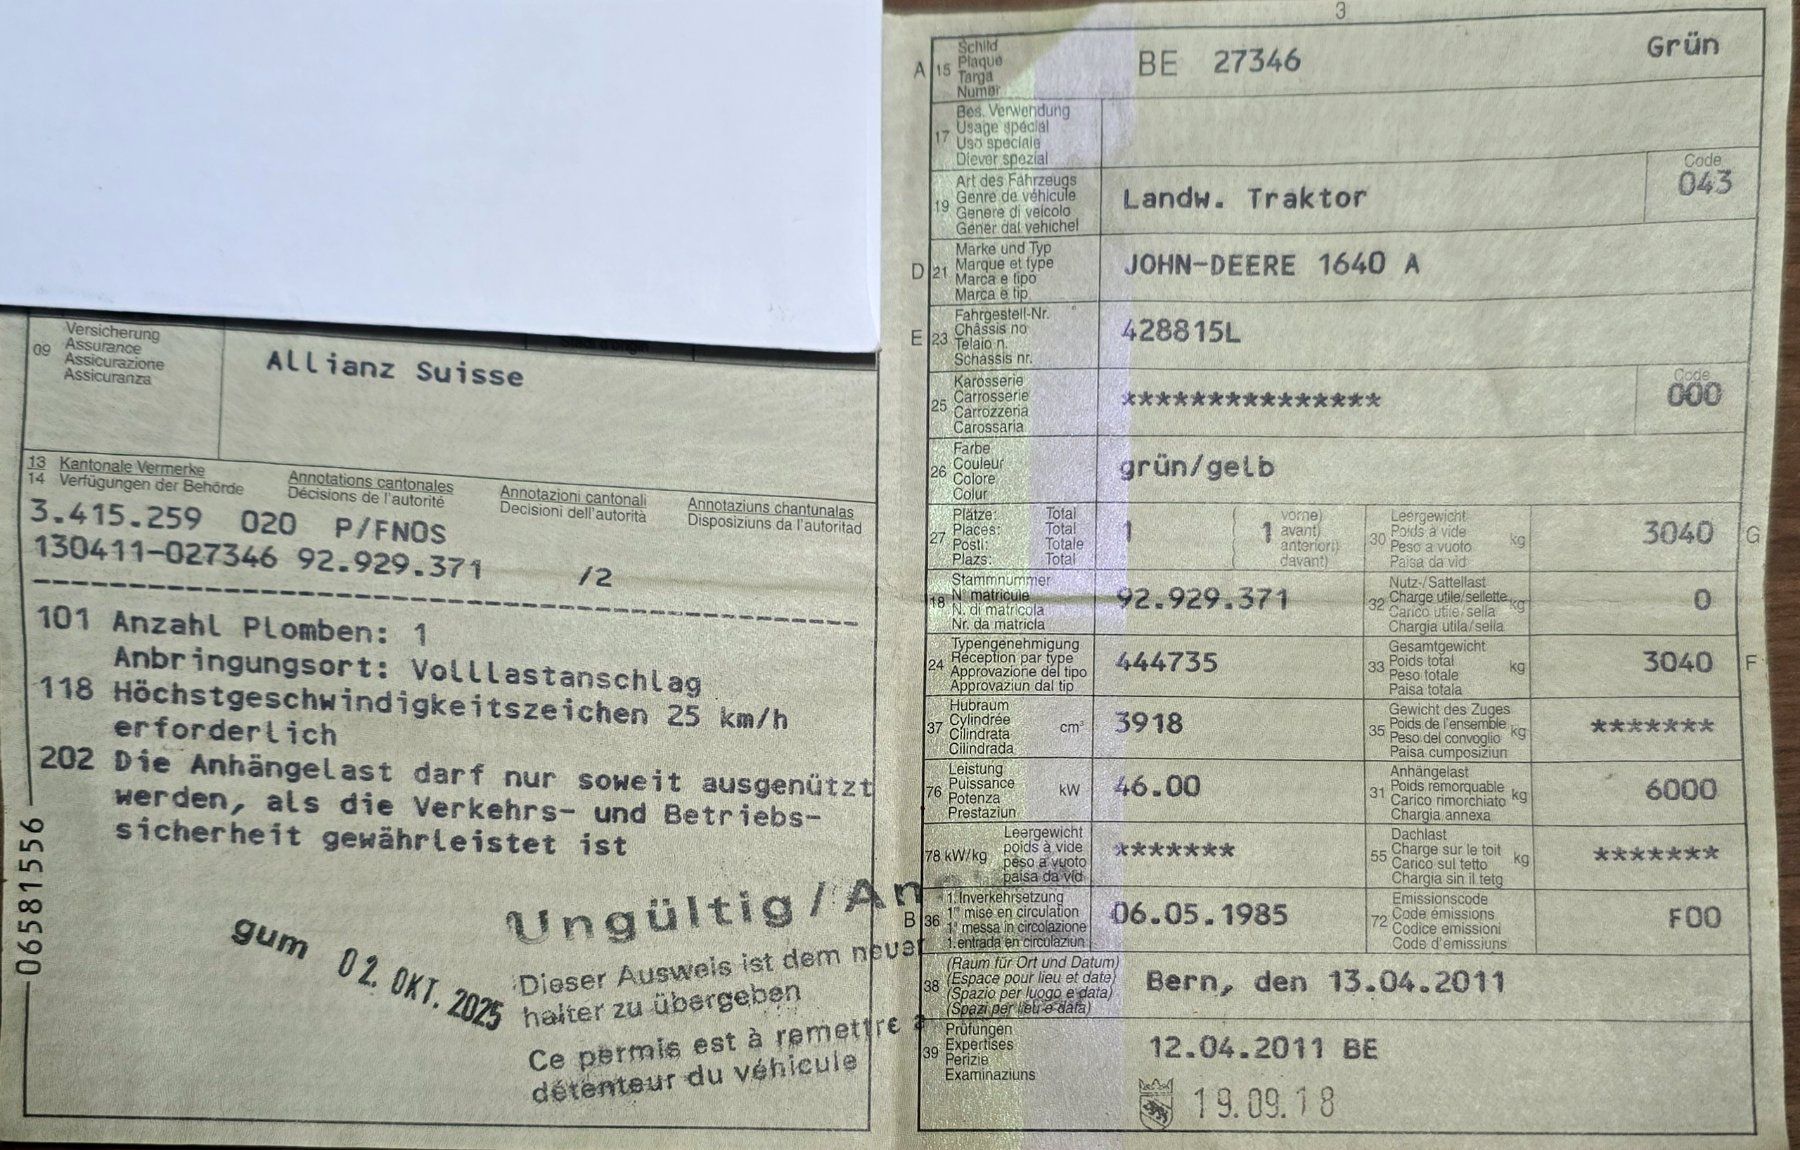 09 Versicherung
Assurance
Assicurazione
Assicuranza
Allianz Suisse
13 Kantonale Vermerke Annotations cantonales Annotazioni cantonali Annotaziuns chantunalas
14 Verfügungen der Behörde Décisions de l'autorité Decisioni dell'autorità Disposiziuns da l'autoritad
3.415.259 020 P/FNOS
130411-027346 92.929.371 /2
101 Anzahl Plomben: 1
Anbringungsort: Volllastanschlag
118 Höchstgeschwindigkeitszeichen 25 km/h
erforderlich
202 Die Anhängelast darf nur soweit ausgenützt
werden, als die Verkehrs- und Betriebs-
sicherheit gewährleistet ist
06581556
Ungültig / An
gum 02. OKT. 2025
Dieser Ausweis ist dem neuen
halter zu übergeben
Ce permis est à remettre a
détenteur du véhicule
3
A 15 Schild
Plaque
Targa
Numer
BE 27346 Grün
17 Bes. Verwendung
Usage spécial
Uso speciale
Diever spezial
19 Art des Fahrzeugs
Genre de véhicule
Genere di veicolo
Gener dal vehichel
Landw. Traktor
Code
043
D 21 Marke und Typ
Marque et type
Marca e tipo
Marca e tip
JOHN-DEERE 1640 A
E 23 Fahrgestell-Nr.
Châssis no
Telaio n.
Schassis nr.
428815L
25 Karosserie
Carrosserie
Carrozzeria
Carossaria
***************
Code
000
26 Farbe
Couleur
Colore
Colur
grün/gelb
27 Plätze: Total
Places: Total
Posti: Totale
Plazs: Total
1
1 vorne)
avant)
anteriori)
davant)
30 Leergewicht
Poids à vide
Peso a vuoto
Paisa da vid
kg 3040 G
18 Stammnummer
N° matricule
N. di matricola
Nr. da matricla
92.929.371
32 Nutz-/Sattellast
Charge utile/sellette
Carico utile/sella
Chargia utila/sella
kg 0
24 Typengenehmigung
Réception par type
Approvazione del tipo
Approvaziun dal tip
444735
33 Gesamtgewicht
Poids total
Peso totale
Paisa totala
kg 3040 F
37 Hubraum
Cylindrée
Cilindrata
Cilindrada
cm³ 3918
35 Gewicht des Zuges
Poids de l'ensemble
Peso del convoglio
Paisa cumposiziun
kg *******
76 Leistung
Puissance
Potenza
Prestaziun
kW 46.00
31 Anhängelast
Poids remorquable
Carico rimorchiato
Chargia annexa
kg 6000
78 kW/kg Leergewicht
poids à vide
peso a vuoto
paisa da vid
*******
55 Dachlast
Charge sur le toit
Carico sul tetto
Chargia sin il tetg
kg *******
B 36 1. Inverkehrsetzung
1re mise en circulation
1a messa in circolazione
1. entrada en circulaziun
06.05.1985
72 Emissionscode
Code émissions
Codice emissioni
Code d'emissiuns
F00
38 (Raum für Ort und Datum)
(Espace pour lieu et date)
(Spazio per luogo e data)
(Spazi per lieu e data)
Bern, den 13.04.2011
39 Prüfungen
Expertises
Perizie
Examinaziuns
12.04.2011 BE
19.09.18